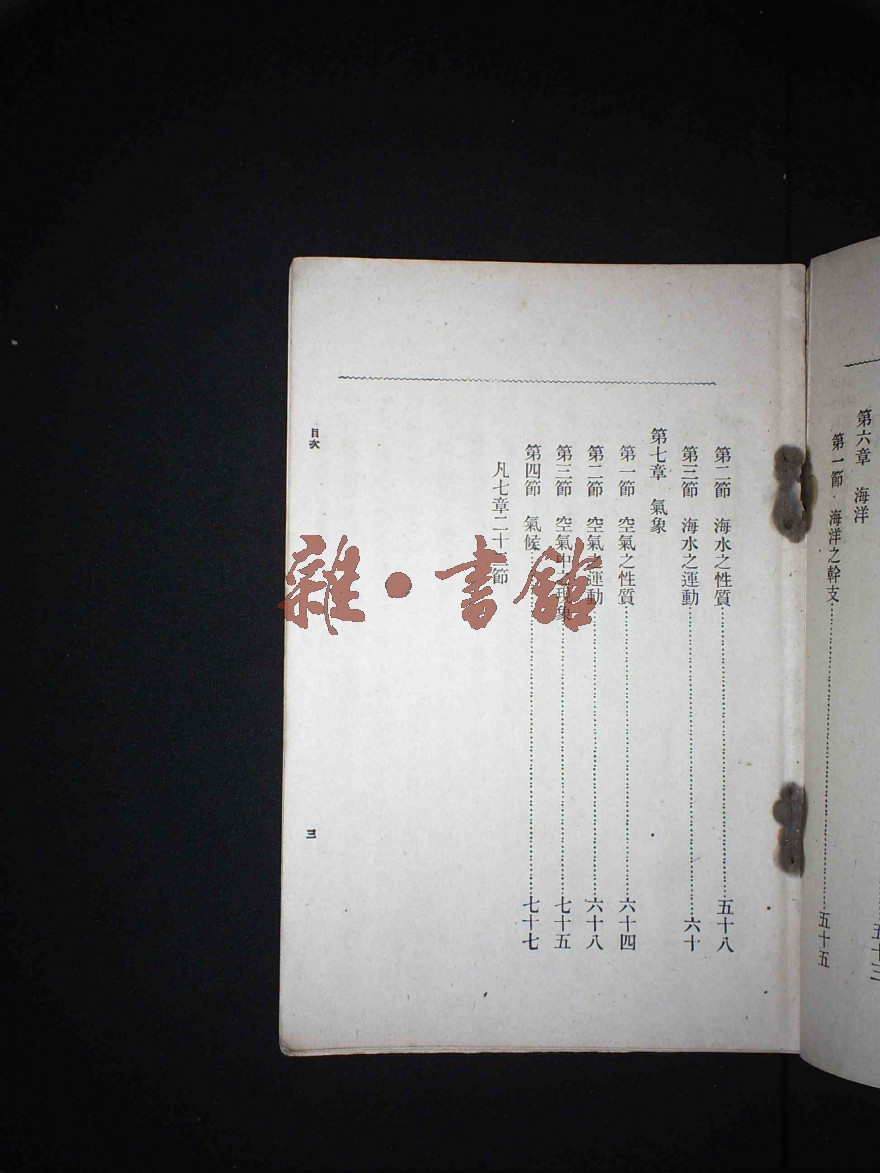 五十三
第六章　海洋
第一節　海洋之幹支…………五十五
第二節　海水之性質…………五十八
第三節　海水之運動…………六十
第七章　氣象
第一節　空氣之性質…………六十四
第二節　空氣之運動…………六十八
第三節　空氣中之現象…………七十五
第四節　氣候…………七十七
凡七章二十三節
目次
三
雜·書館